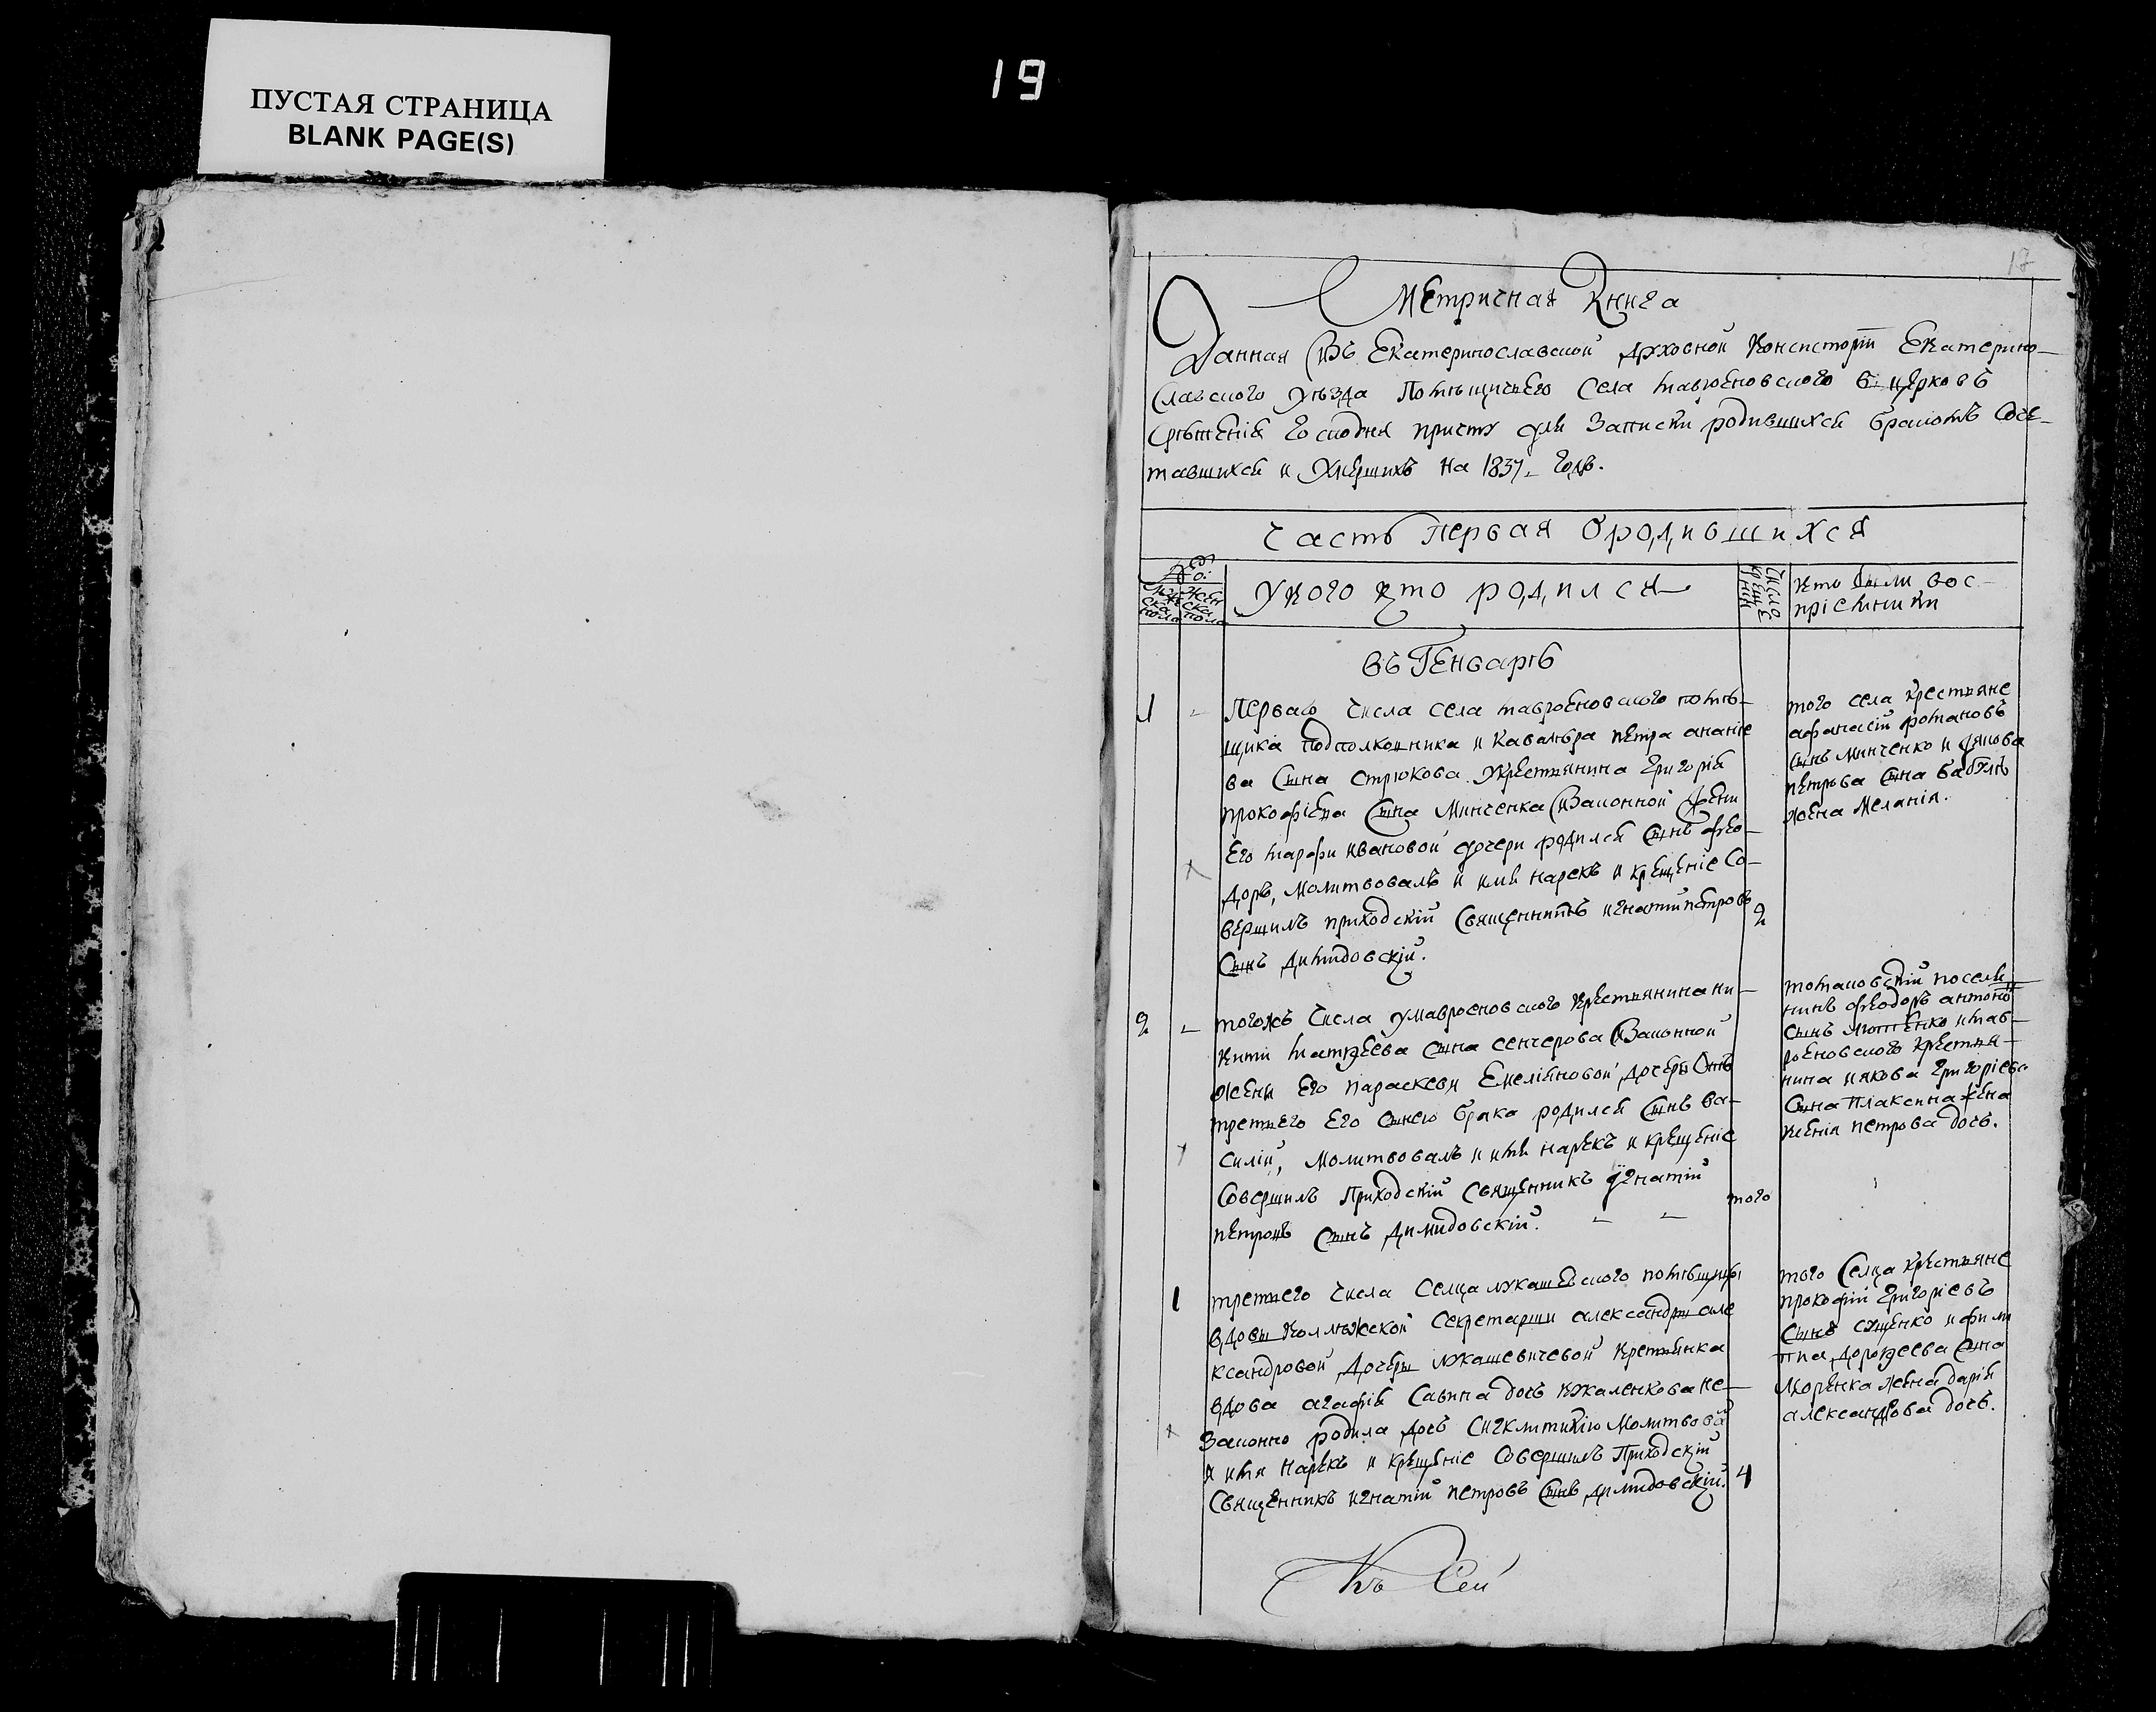 19
ПУСТАЯ СТРАНИЦА
BLANK PAGE(S)
17
Метричная Книга
Данная изъ Екатеринославской Духовной Консисторіи Екатерино-
славского уезда Помѣщичьего села Мавроеновского въ церковь
Срѣтенія Господня причту для Записки родившихся бракомъ соче-
тавшихся и умершихъ на 1837 годъ.
Часть Первая О родившихся
Мужеска пола
Женска пола
У кого кто родился
Число крещенія
Кто были вос-
пріемники
въ Генварѣ
1
Перваго числа села Мавроеновского помѣ-
щика подполковника и Кавалѣра Петра Ананіе
ва сына Стрюкова у крестьянина Григорія
Прокофіева сына Минченка и Законной жены
Его Марфы Ивановой дочери родился сынъ Фео-
доръ, Молитвовалъ и имя нарекъ и крещеніе со-
вершилъ приходскій Священникъ Игнатій Петровъ
сынъ Димидовскій.
2
того села крестьяне
Афанасій Романовъ
сынъ Минченко и
Петрова сына
жена Меланія.
2
тогожъ числа у Мавроеновского крестьянина Ни-
киты Матѳеева сына Сенчерова и Законной
жены Его Параскевы Емеліяновой дочери отъ
третьего Его с нею брака родился сынъ Ва-
силій, Молитвовалъ и имя нарекъ и крещеніе
совершилъ Приходскій Священникъ Игнатій
Петровъ сынъ Димидовскій.
того
поселя
нинъ Феодоръ Антоно
сынъ и Мав-
роеновского крестья-
нина Иякова Григоріева
сына Плаксина жена
Ксенія Петрова дочь.
1
третьего числа Селца Лукашевского помѣщицы
вдовы Коллѣжской Секретарши Александры Але
ксандровой дочери Лукашевичевой крестьянка
вдова Агафія Савина дочь не-
законно родила дочь Сигклитикію Молитвова
и имя нарекъ и крещеніе совершилъ Приходскій
Священникъ Игнатій Петровъ сынъ Димидовскій.
4
того Селца крестьяне
Прокофій Григоріевъ
сынъ Сущенко и Фили
ппа Дороѳеева сына
жена Дарія
Александрова дочь.
Къ Сей